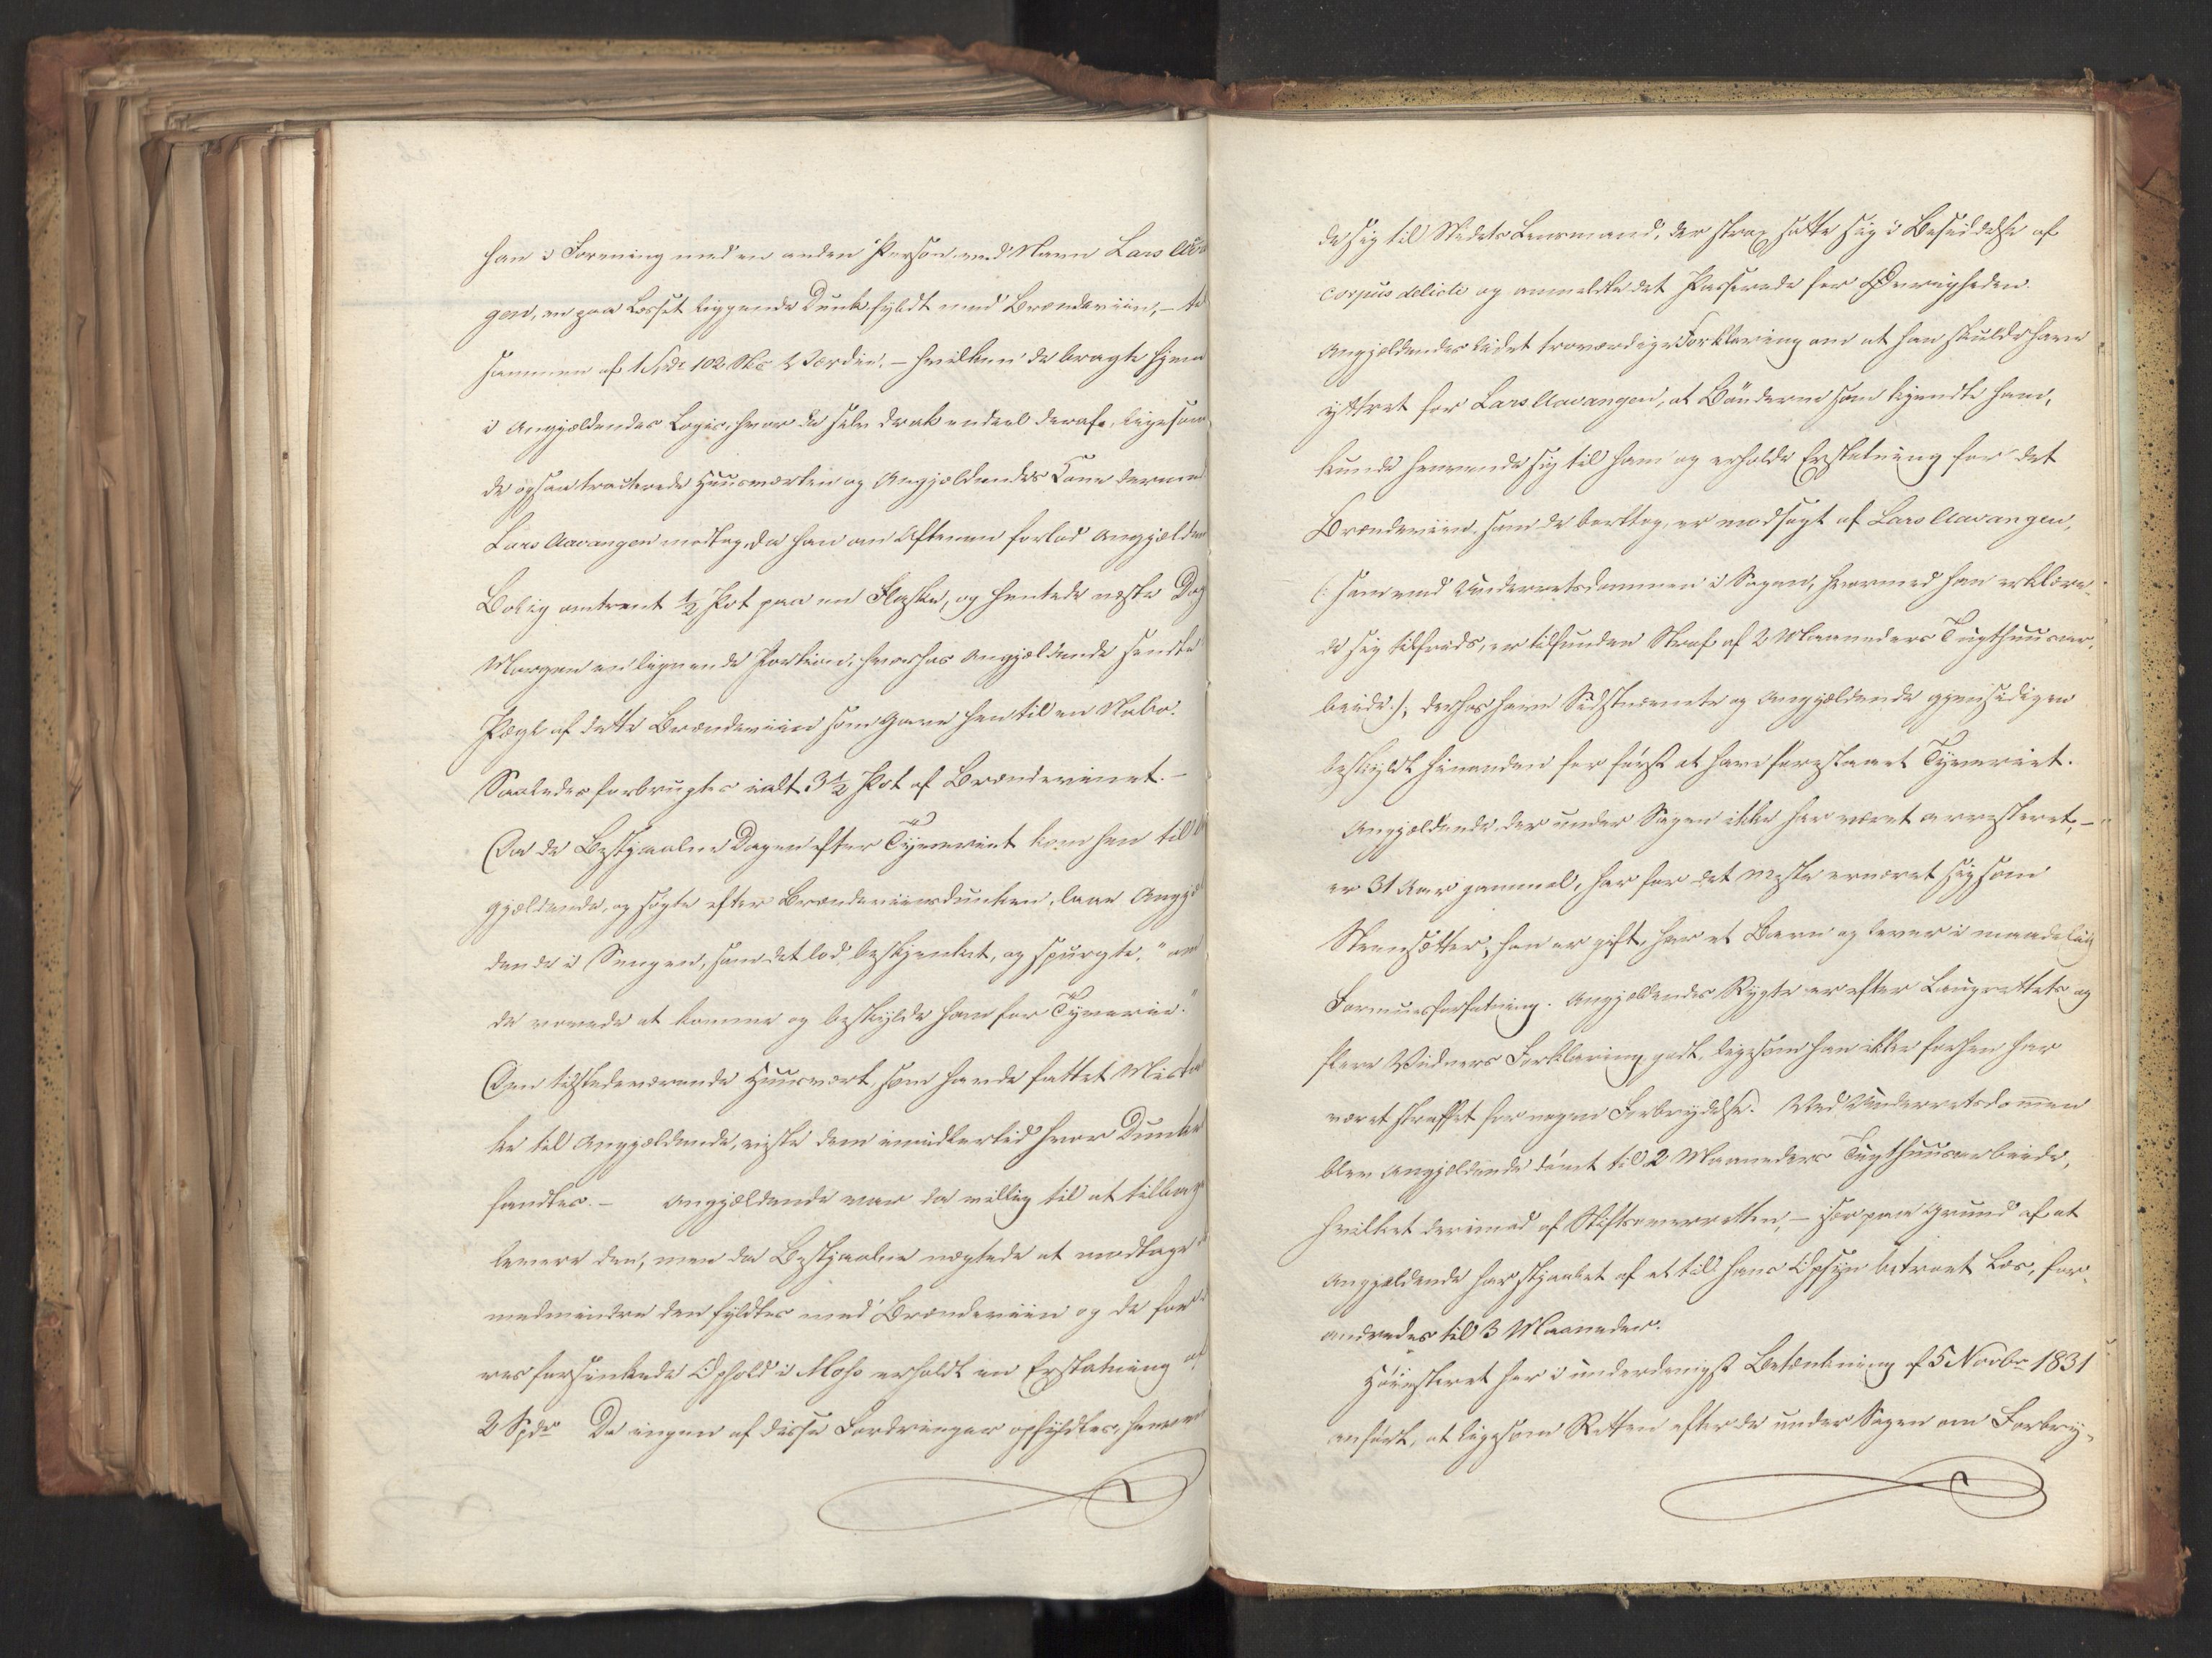 han i Forening med en anden Person ved Navn Lars Aavan
gen, en paa Læsset liggende Dunk fyldt med Brændeviin, – til
sammen af 1 Spdr 102 Skr Værdie. – hvilken de bragte hjem
i Angjældendes Logis, hvor de selv drak endeel deraf, ligesom
de ogsaa tracterede Huusværten og Angjældendes Kone dermed
Lars Aavangen modtog, da han om Aftenen forlod Angjælden
Bolig omtrent ½ Pot paa en Flaske, og hentede næste Dag
Morgen en lignende Portion, hvorhos Angjældende sendte
Pægl af dette Brændeviin som Gave hen til en Nabo.
Saaledes forbrugtes ialt 3½ Pot af Brændevinet. –
Da de Bestjaalne Dagen efter Tyveriet kom hen til
gjældende, og søgte efter Brændeviinsdunken, laae Angjæl
dende i Sengen, som det lod, beskjenket, og spurgte, "om
de vovede at komme og beskylde ham for Tyverie."
Den tilstedeværende Huusvært, som havde fattet Mistan
ke til Angjældende, viste dem imidlertid hvor Dunken
fandtes. – Angjældende var da villig til at tilbage
levere den, men da Bestjaalne nægtede at modtage
medmindre den fyldtes med Brændeviin og de for
res forsinkede Ophold i Moss erholdt en Erstatning af
2 Spdr Da ingen af disse Fordringer opfyldtes, henven
de sig til Stedets Lensmand, der strax satte sig i Besiddelse af
corpus delicti og anmeldte det Passerede for Øvrigheden.
Angjældendes lidet troværdige Forklaring om at han skulde have
yttret for Lars Aavangen, at Bønderne som kjendte ham,
kunde henvende sig til ham og erholde Erstatning for det
Brændeviin, som de borttog, er modsagt af Lars Aavangen,
(: som ved Underretsdommen i Sagen, hvormed han erklære-
de sig tilfreds, er tilfunden Straf af 2 Maaneders Tugthuusar-
beide:); derhos have Sidstnævnte og Angjældende gjensidigen
beskyldt hinanden for først at have foreslaaet Tyveriet.
Angjældende der under Sagen ikke har været arresteret, –
er 31 Aar gammel, har for det meste ernæret sig som
Steensætter; han er gift, har et Barn og lever i maadelig
Formuesforfatning. Angjældendes Rygte er efter Laugrettets og
flere Vidners Forklaring godt, ligesom han ikke forhen har
været straffet for nogen Forbrydelse. Ved Underretsdommen
blev Angjældende dømt til 2 Maaneders Tugthuusarbeide,
hvilket derimod af Stiftsoverretten, – især paa Grund af at
Angjældende har stjaalet af et til hans Opsyn betroet Læs, for-
andredes til 3 Maaneder.
Høiesteret har i underdanigst Betænkning af 5 Novbr 1831
anført, at ligesom Retten efter de under Sagen om Forbry-